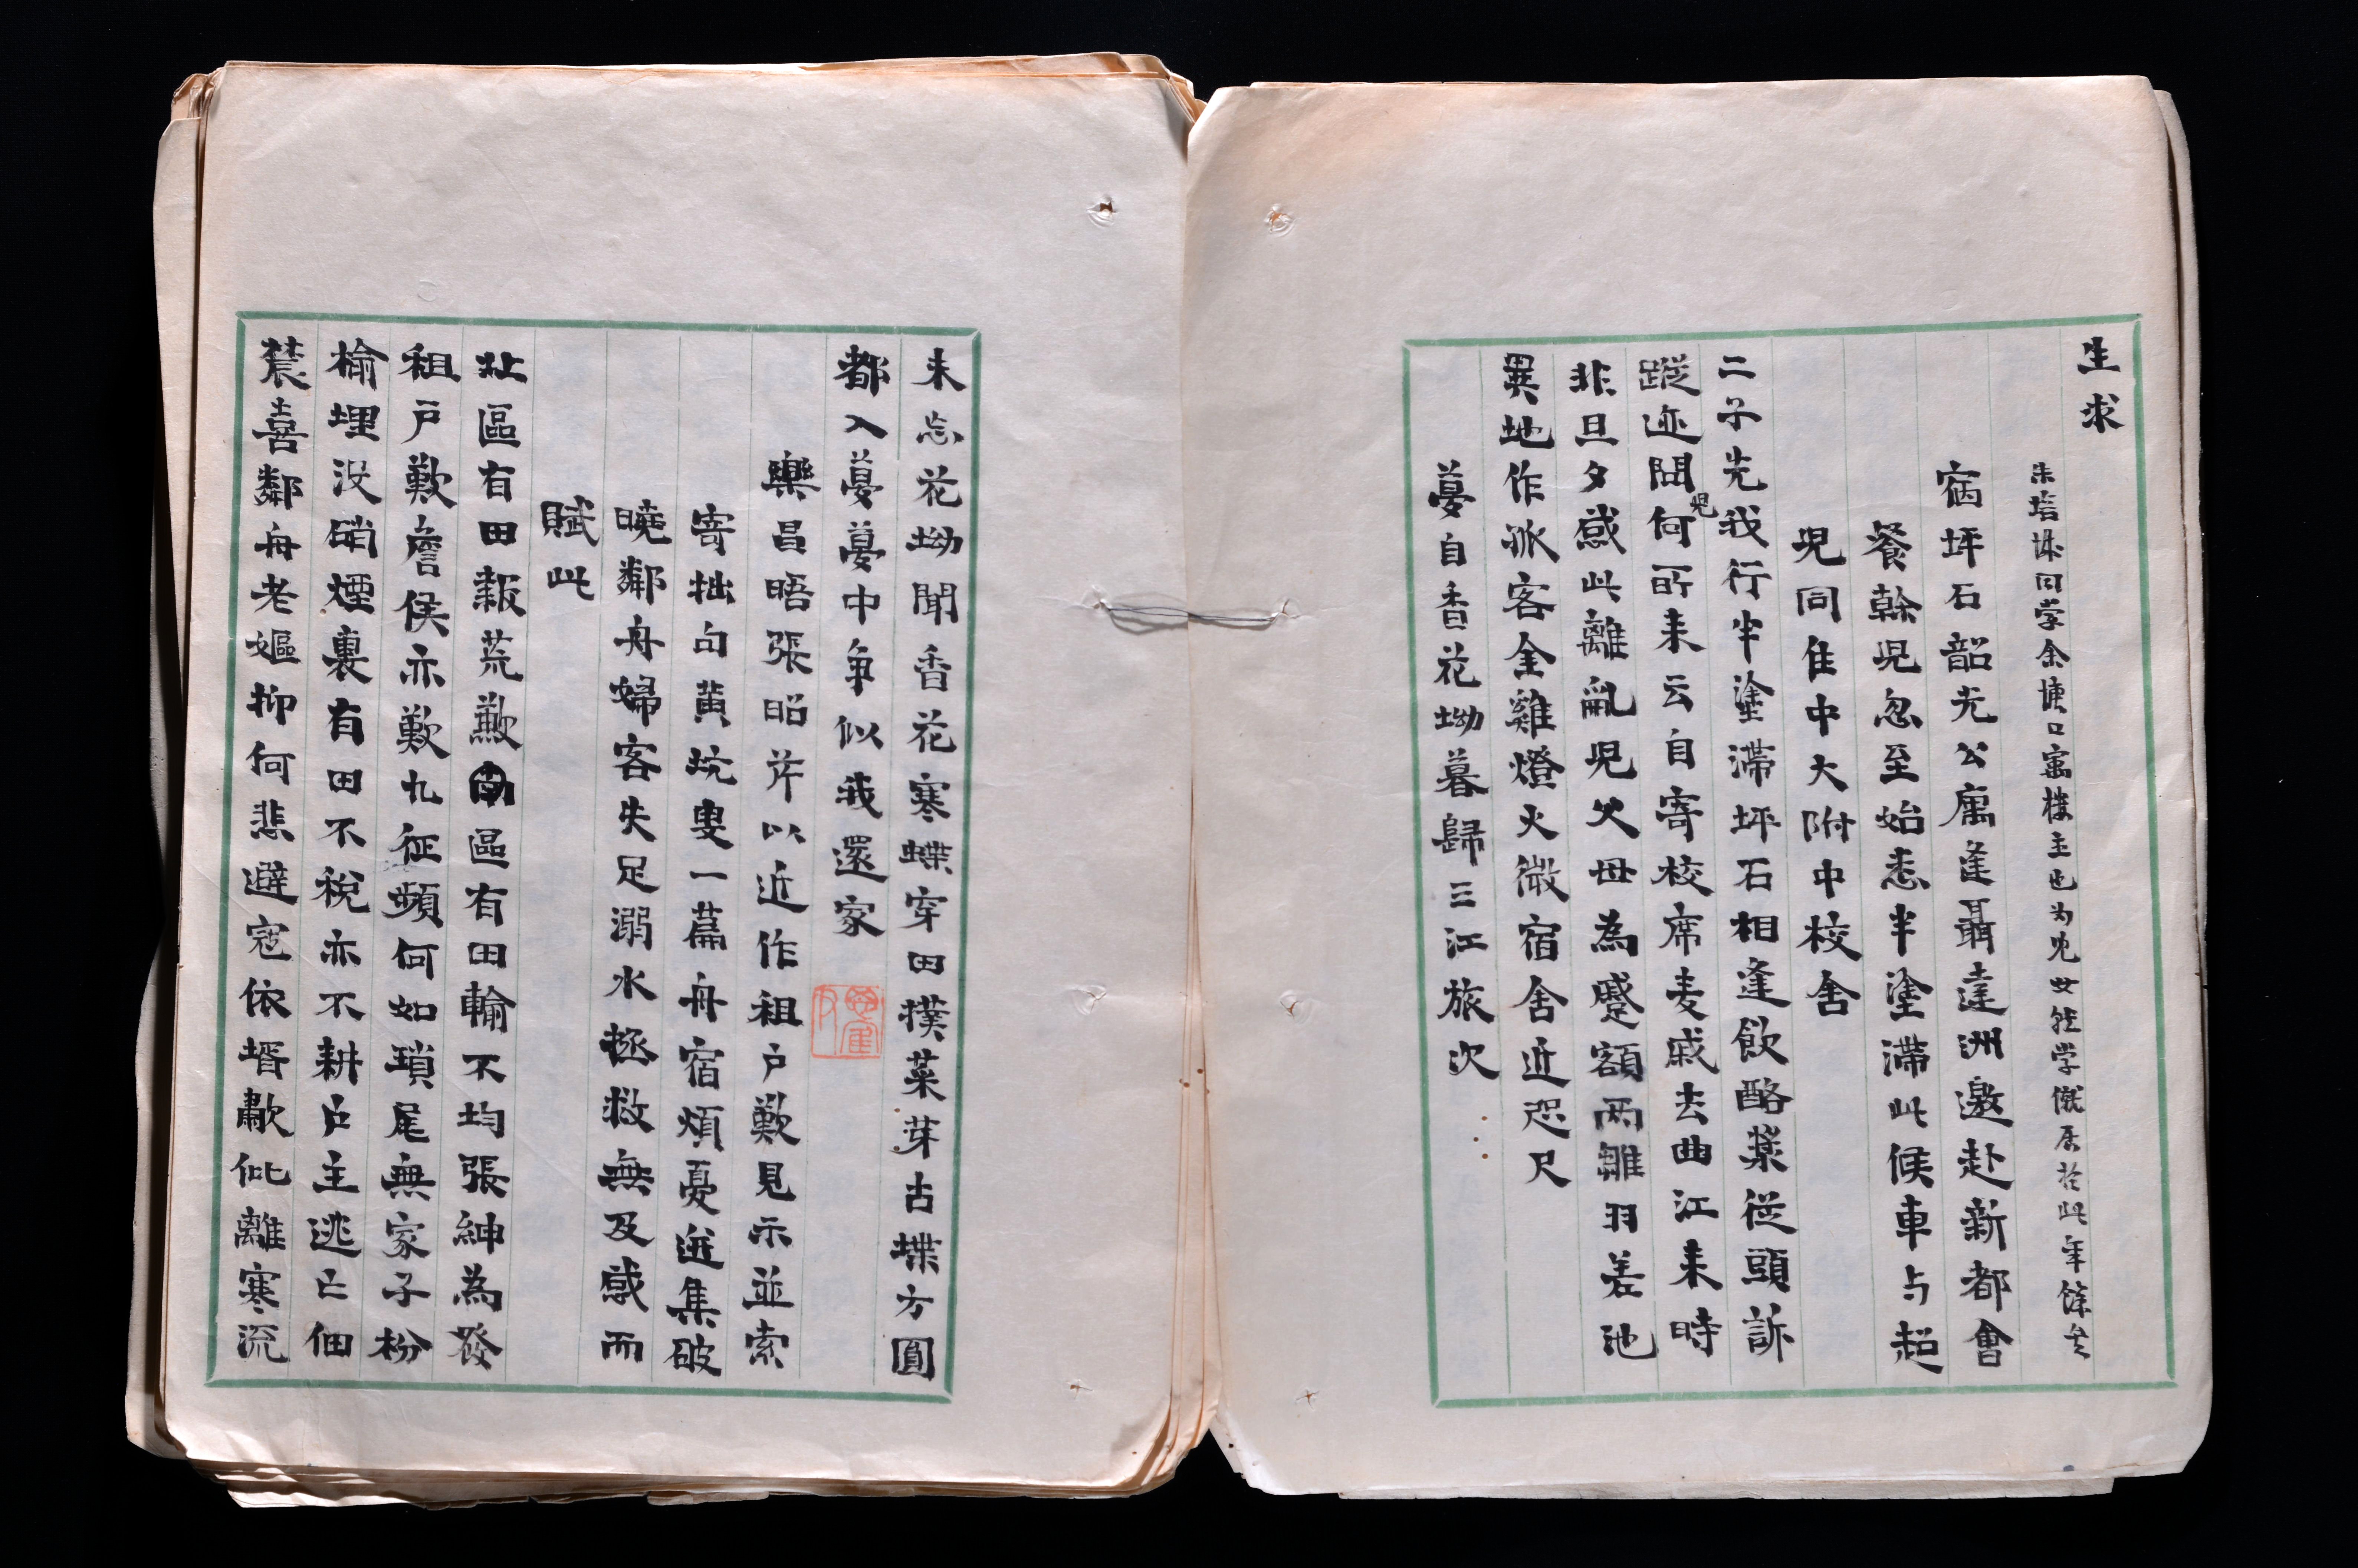 生求
朱培 同学余塘口寓樓主也为兒女能学僦居於此年馀矣
宿坪石韶光公寓逢聶達洲邀赴新都會
餐幹兒忽至始悉半塗滯此候車与超
兒同隹中大附中校舍
二子先我行半塗滯坪石相逢飲酪漿從頭訴
蹤迹問兒何所来云自寄校席麦戚去曲江来時
非旦夕慼此離亂兒父母為蹙額兩雛羽差池
異地作派客金雞燈火微宿舍近咫尺
夢自香花坳暮歸三江旅次
未忘花坳聞香花寒蝶穿田撲菜芽古堞方圓
都入夢夢中争似我還家
樂昌晤張昭芹以近作租户歎見示並索
寄拙句黄坑叟一篇舟宿煩憂迸集破
曉鄰舟婦客失足溺水拯救無及感而
賦此
北區有田報荒歉南區有田輸不均張紳為發
租户歎詹侯亦歎九征頻何如瑣尾無家子枌
榆埋没硝煙裏有田不稅亦不耕户主逃亡佃
農喜鄰舟老嫗抑何悲避寇依壻歗仳離寒流